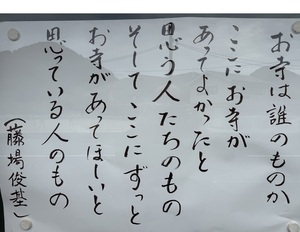 お寺は誰のものか
ここにお寺が
あってよかったと
思う人たちのもの
そしてここにずっと
お寺があってほしいと
思っている人のもの
(藤場俊基)